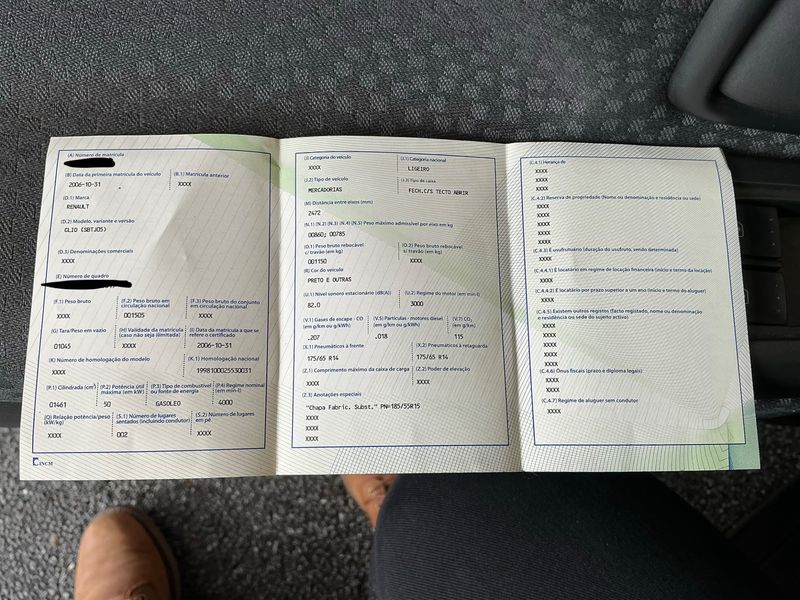 (A) Número de matrícula
(B) Data da primeira matrícula do veículo
2006-10-31
(B.1) Matrícula anterior
XXXX
(D.1) Marca
RENAULT
(D.2) Modelo, variante e versão
CLIO (SBTJ05)
(D.3) Denominações comerciais
XXXX
(E) Número de quadro
(F.1) Peso bruto
XXXX
(F.2) Peso bruto em
circulação nacional
001505
(F.3) Peso bruto do conjunto
em circulação nacional
XXXX
(G) Tara/Peso em vazio
01045
(H) Validade da matrícula
(caso não seja ilimitada)
XXXX
(I) Data da matrícula a que se
refere o certificado
2006-10-31
(K) Número de homologação do modelo
XXXX
(K.1) Homologação nacional
1998100025530031
(P.1) Cilindrada (cm³)
01461
(P.2) Potência útil
máxima (em kW)
50
(P.3) Tipo de combustível
ou fonte de energia
GASOLEO
(P.4) Regime nominal
(em min-l)
4000
(Q) Relação potência/peso
(kW/kg)
XXXX
(S.1) Número de lugares
sentados (incluindo condutor)
002
(S.2) Número de lugares
em pé
XXXX
INCM
(J) Categoria do veículo
XXXX
(J.1) Categoria nacional
LIGEIRO
(J.2) Tipo de veículo
MERCADORIAS
(J.3) Tipo de caixa
FECH.C/S TECTO ABRIR
(M) Distância entre eixos (mm)
2472
(N.1) (N.2) (N.3) (N.4) (N.5) Peso máximo admissível por eixo em kg
00860; 00785
(O.1) Peso bruto rebocável
c/ travão (em kg)
001150
(O.2) Peso bruto rebocável
s/ travão (em kg)
XXXX
(R) Cor do veículo
PRETO E OUTRAS
(U.1) Nível sonoro estacionário (dB(A))
82.0
(U.2) Regime do motor (em min-l)
3000
(V.1) Gases de escape - CO
(em g/km ou g/kWh)
.207
(V.5) Partículas - motores diesel
(em g/km ou g/kWh)
.018
(V.7) CO₂
(em g/km)
115
(X.1) Pneumáticos à frente
175/65 R14
(X.2) Pneumáticos à retaguarda
175/65 R14
(Z.1) Comprimento máximo da caixa de carga
XXXX
(Z.2) Poder de elevação
XXXX
(Z.3) Anotações especiais
"Chapa Fabric. Subst." PN=185/55R15
XXXX
XXXX
XXXX
(C.4.1) Herança de
XXXX
XXXX
XXXX
(C.4.2) Reserva de propriedade (Nome ou denominação e residência ou sede)
XXXX
XXXX
XXXX
XXXX
XXXX
(C.4.3) É usufrutuário (duração do usufruto, sendo determinada)
XXXX
(C.4.4.1) É locatário em regime de locação financeira (início e termo da locação)
XXXX
(C.4.4.2) É locatário por prazo superior a um ano (início e termo do aluguer)
XXXX
(C.4.5) Existem outros registos (facto registado, nome ou denominação
e residência ou sede do sujeito activo)
XXXX
XXXX
XXXX
XXXX
XXXX
(C.4.6) Ónus fiscais (prazo e diploma legais)
XXXX
XXXX
(C.4.7) Regime de aluguer sem condutor
XXXX